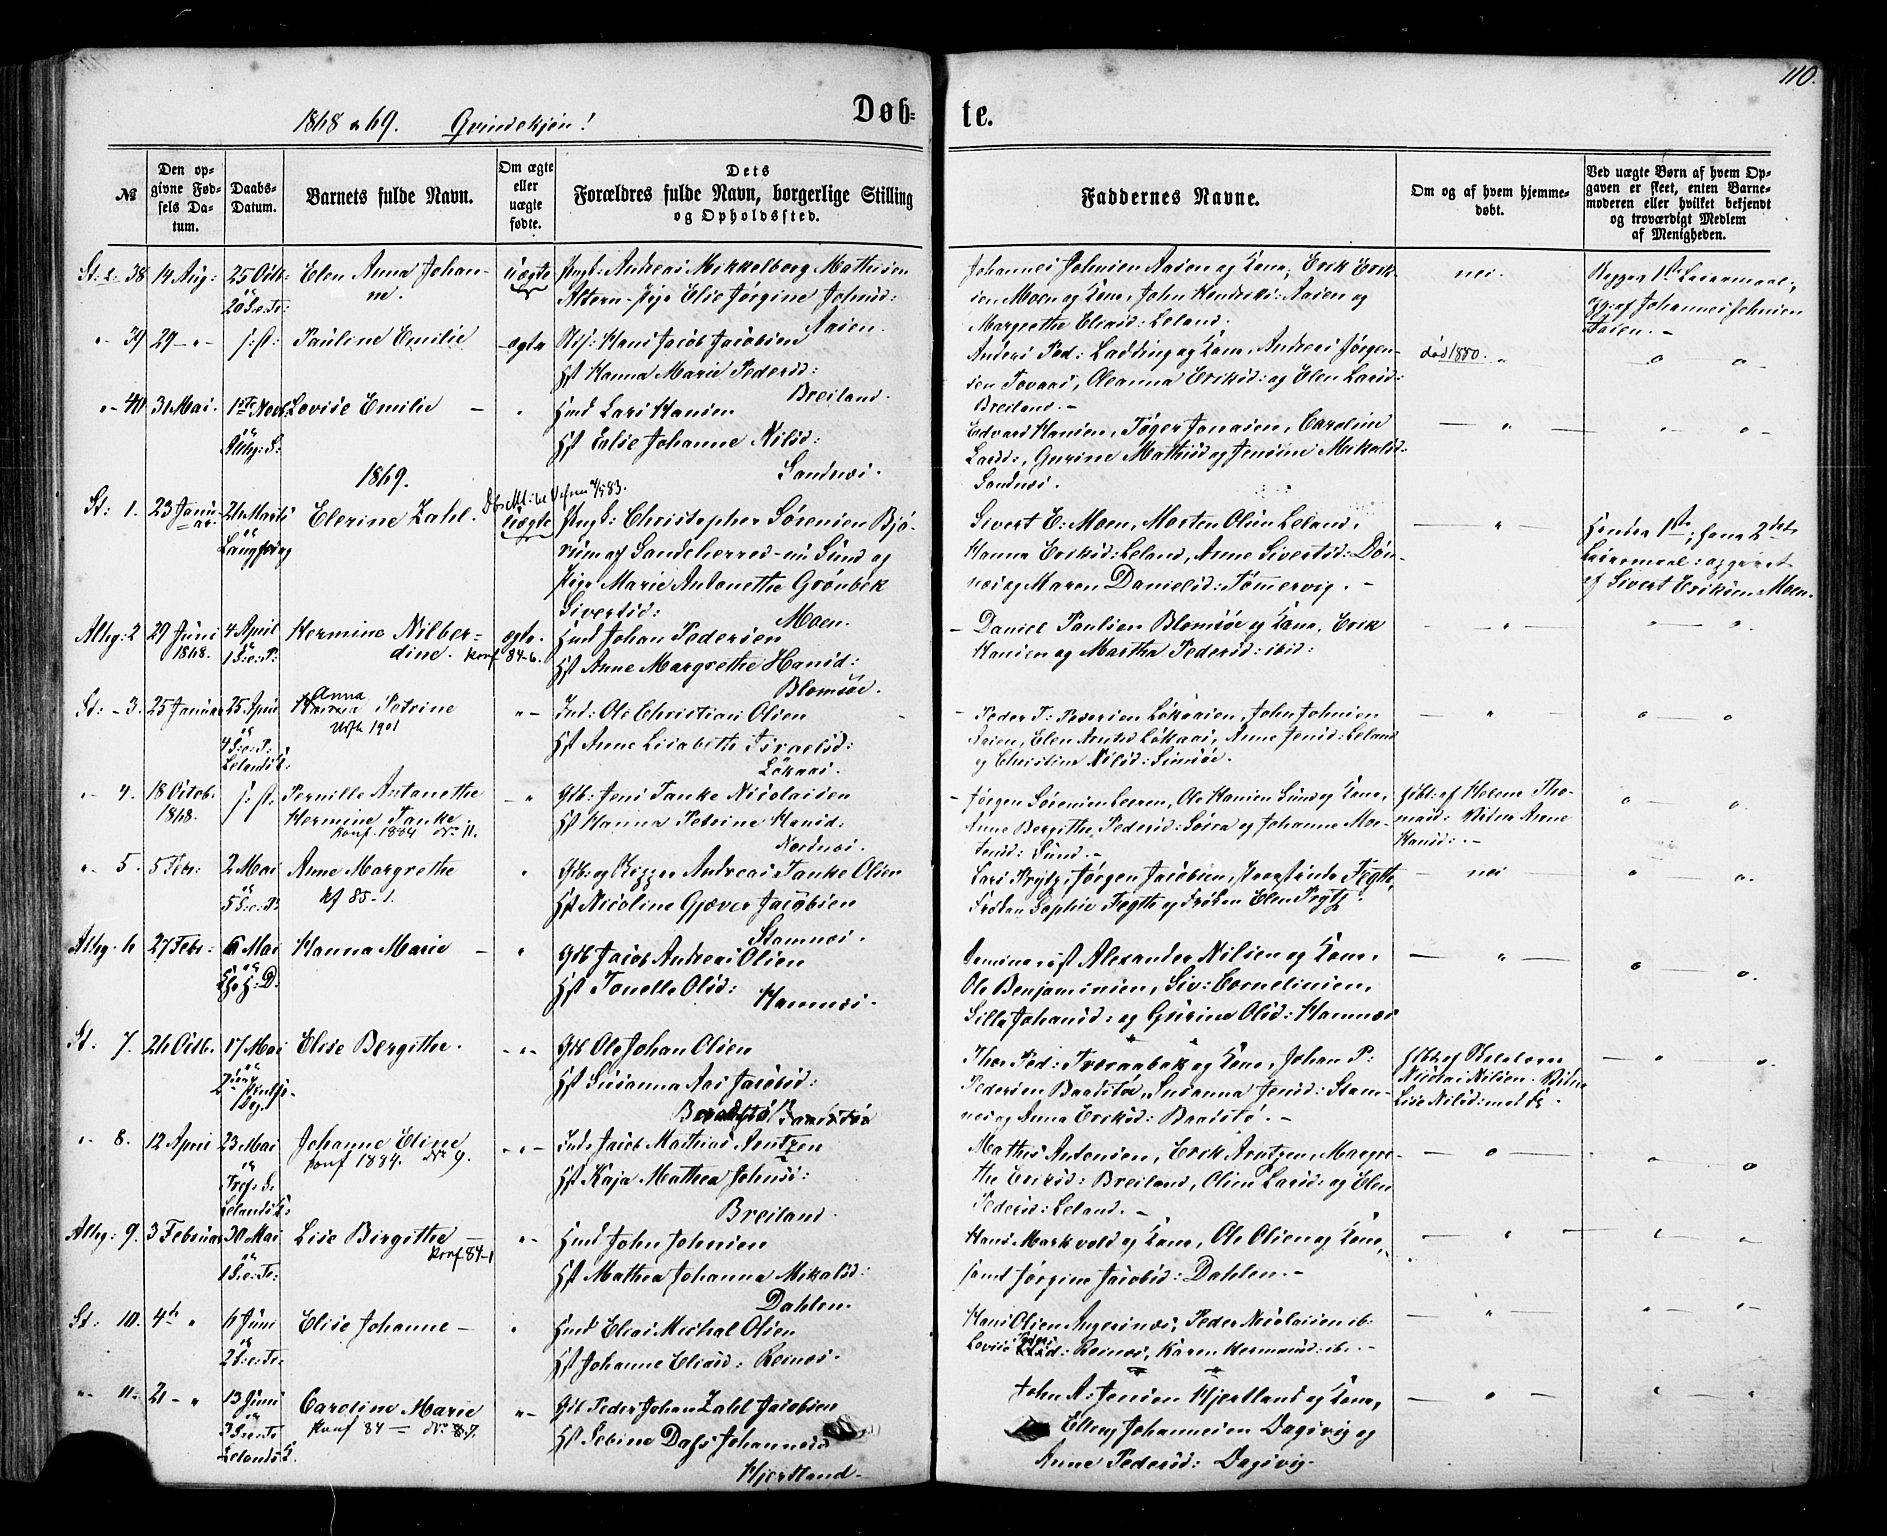 110.
1868 & 69. Qvindekjøn!
Døb- te.
№
Den op-
givne Fød-
sels Da-
tum.
Daabs-
Datum.
Barnets fulde Navn.
Om ægte
eller
uægte
fødte.
Dets
Forældres fulde Navn, borgerlige Stilling
og Opholdssted.
Faddernes Navne.
Om og af hvem hjemme-
døbt.
Ved uægte Børn af hvem Op-
gaven er skeet, enten Barne-
moderen eller hvilket bekjendt
og troværdigt Medlem
af Menigheden.
38 14 Aug: 25 Oct: Elen Anna Johan-
ne.
uægte
Ungk: Andreas Mikkelborg Mathisen
Pige Elise Jørgine Johnsd:
Aasen.
Johannes Johnsen Aasen og Kone, Erik Erik-
sen Moen og Kone, John Hendriks: Aasen og
Margrethe Eliasd: Leland.
nei.
Begges 1ste Leiermaal;
Opg: af Johannes Johnsen
Aasen.
39 29 Pauline Emilie ægte
Hans Jacob Jacobsen
Hst Hanna Marie Pedersd:
Breiland.
Anders Ped: Ladding og Kone, Andreas Jørgen-
sen Tovaas, Oleanna Eriksd: og Elen Larsd:
Breiland.
død 1880.
40 31 Mai. 1ste Novb: Lovise Emilie
Hmd Lars Hansen
Johanne Nilsd:
Sandnes.
Edvard Hansen, Tøger Jonasen, Caroline
Larsd:, Gurine Mathisd og Jensine Mikalsd:
Sandnes.
1869.
St: 1. 23 Janu-
ar. 26 Marts
Langfredag
Elerine Zahl.
uægte
Ungk: Christopher Sørensen Bjø-
rum af Sandeherred nu Sund og
Pige Marie Antonette Grønbek
Sivertsd: Moen.
Sivert E: Moen, Morten Olsen Leland,
Hanna Eriksd: Leland, Anne Sivertsd: Døn-
nes og Maren Danielsd: Tømmervig.
Hendes 1ste, hans 2det
Leiermaal: opgivet
af Sivert Eriksen Moen.
Alhg: 2 29 Juni
1868. 4 April
1 S: e: P:
Hermine Nilber-
dine. Konf 84-6.
ægte.
Hmd Johan Pedersen
Hst Anne Margrethe Hansd:
Blomsøe.
Daniel Paulsen Blomsøe og Kone, Erik
Hansen og Martha Pedersd: ibid:
St: 3. 25 Januar 25 April
4 S: e: P:
Anna
Petrine
Utfl. 1901
Ind: Ole Christian Olsen
Hst Anne Lisabeth Israelsd:
Løkaas.
Peder T: Pedersen Løkaasen, John Johnsen
Aasen, Elen Løkaas, Anne Jensd: Leland
og Christine Nilsd: Simsøe.
4. 18 Octob.
1868.
Pernille Antonette
Hermine Tanke.
Konf. 1884 No 11.
Gtb: Jens Tanke Nicolaisen
Hst Hanna Petrine Hansd:
Nordnes.
Jørgen Sørensen Leeren, Ole Hansen Sund og Kone,
Anne Bergithe Pedersd: og Johanne Mor-
tensd: Sund.
Hjdbt: af Helene Tho-
masd: Vidne Anne
Hansd:
5. 5 Febr: 2 Mai
5 S: e: P:
Anne Margrethe
kf 85-1.
Gtb: og Andreas Tanke Olsen
Hst Nicoline Gjæver Jacobsen
Stamnes.
Lars Prytz, Jørgen Jacobsen, Fegth,
Frøken Sophie Fegth og Frøken Elen Prytz.
nei
Alhg. 6 27 Febr: 6 Mai
Hanna Marie
Gtb Jacob Andreas Olsen
Hst Tonette Olsd: Hamnes.
Seminarist Alexander Nilsen og Kone,
Ole Benjaminsen, Siv: Cornelinsen,
Silla Johansd: og Gurine Olsd: Hamnes
St. 7. 26 Octb. 17 Mai
2 Pintse-
Dag.
Elise Bergithe.
Gtb Ole Johan Olsen
Hst Susanna Aas Jacobsd:
Baadstøe
Thor Ped: Tveraabak og Kone, Johan P:
Pedersen Baadstøe, Susanna Jensd: Stam-
nes og Anna Eriksd: Baadstø.
Nicolai Nilsen. Vidne
Lise Nilsd:
8. 12 April 23 Mai
Tref: S.
Johanne Eline
Konf 1884. No 9.
Ind: Jacob Mathias Arntzen
Hst Kaja Mathea Johnsd:
Breiland.
Mathis Antonsen, Erik Arntzen, Margre-
the Eriksd: Breiland, Oline Larsd: og Elen
Pedersd: Leland.
Alhg: 9. 3 Februar 30 Mai
1 S: e: Tr:
Lise Birgithe
Konf 84-1
Hmd John Johnsen
Hst Mathea Johanna Mikalsd:
Dahlen.
Hans Markvold og Kone, Ole Olsen og Kone,
samt Jørgine Jacobsd: Dahlen.
St: 10. 4de 6 Juni
2 S: e: Tr:
Elise Johanne
Hmd Elias Michal Olsen
Hst Johanne Eliasd: Reines.
Hans Olsen Angersnes, Peder Nicolaisen ib:
Lovise Reines, Karen Hermansd: ib:
11. 21 13 Juni
3 S: e: Tr
Caroline Marie
Konf 84 No 87.
Gtb Peder Johan Zahl Jacobsen
Hst Sebine Johannesd
Hjertland
John A: Jensen Hjertland og Kone,
Johannesen Dagsvig og
Anne Pedersd: Dagsvig.